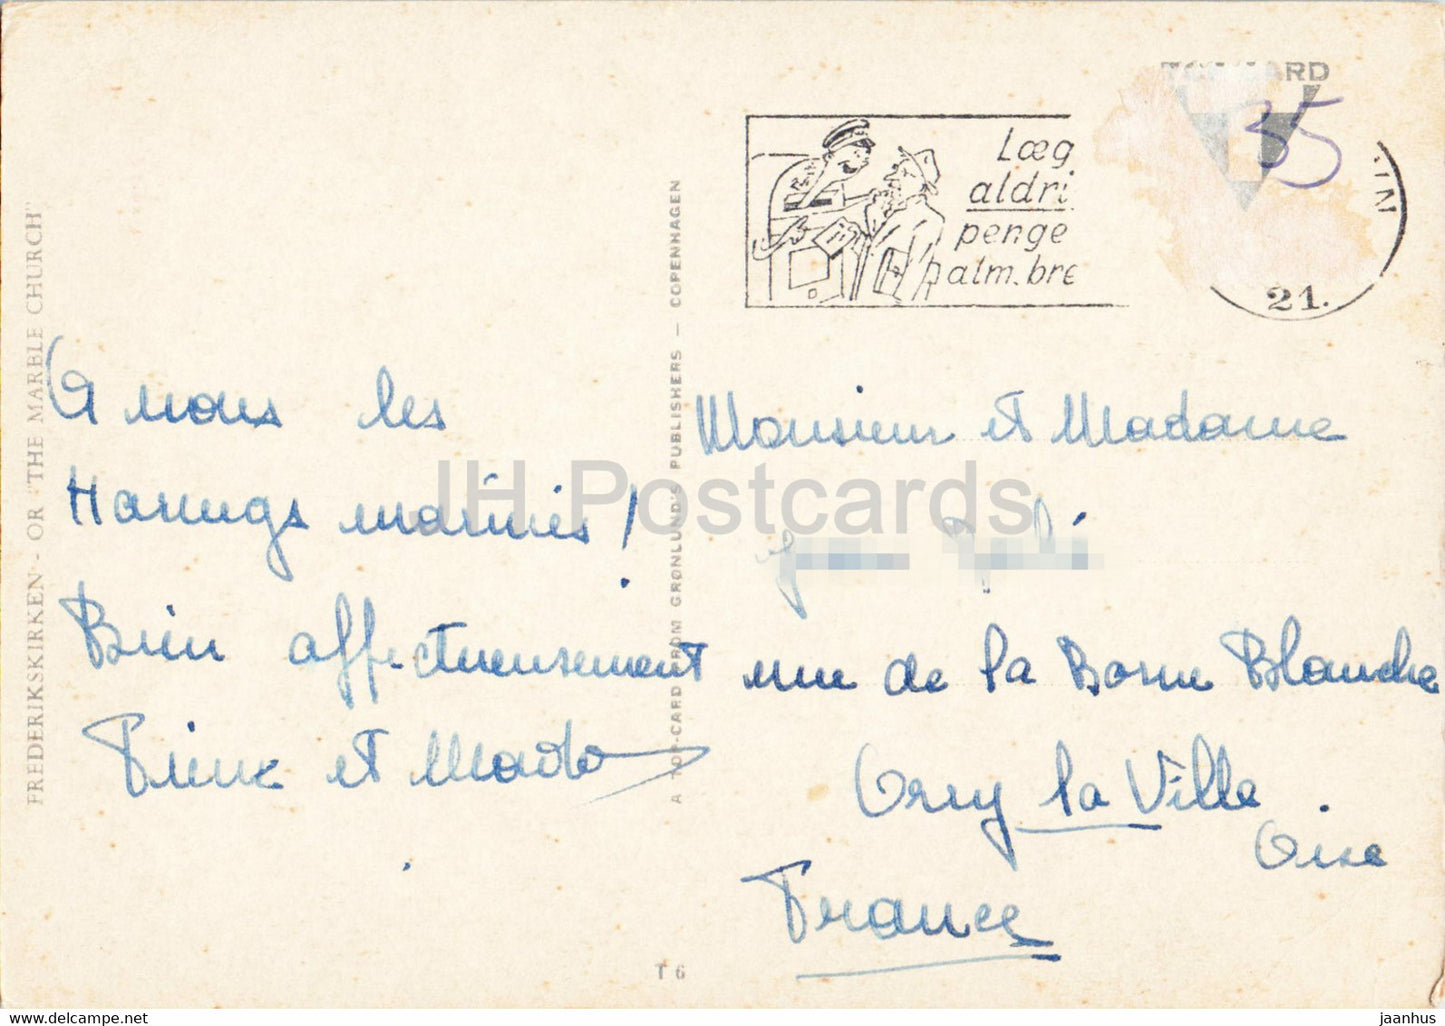 TOP-CARD
35
Læg
aldri
penge
alm. bre
21.
FREDERIKSKIRKEN - OR "THE MARBLE CHURCH"
A TOP-CARD FROM GRØNLUND'S PUBLISHERS — COPENHAGEN
A nous les
Harengs marinés!
Bien affectueusement
Pierre et Mado
Monsieur et Madame
rue de la Borne Blanche
Orry la Ville
Oise
France
T 6
IH Postcards
www.delcampe.net
jaanhus